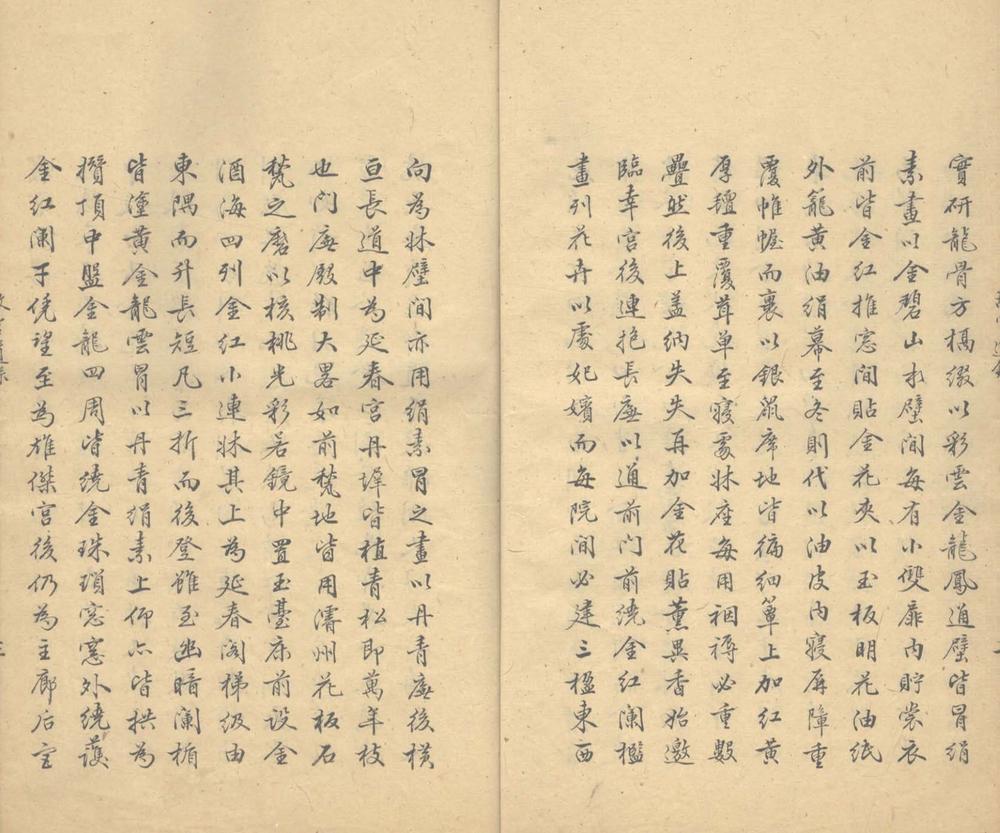 實研龍骨方槅綴以彩雲金龍鳳通壁皆冒絹
素畫以金碧山水壁間每有小雙扉內貯裳衣
前皆金紅推窓間貼金花夾以玉板明花油紙
外籠黃油絹幕至冬則代以油皮內寢屏障重
覆帷幄而裏以銀鼠席地皆徧細簟上加紅黃
厚氊重覆茸單至寢處牀座每用裀褥必重數
疊然後上盖納失失再加金花貼薰異香始邀
臨幸宮後連抱長廡以通前门前繞金紅闌檻
畫列花卉以處妃嬪而每院間必建三楹東西
向為牀壁間亦用絹素冒之畫以丹青廡後橫
亘長道中為延春宮丹墀皆植青松即萬年枝
也门廡殿制大畧如前甃地皆用濬州花板石
甃之磨以核桃光彩若鏡中置玉臺床前设金
酒海四列金紅小連牀其上為延春阁梯级由
東隅而升長短凡三折而後登雖至幽暗闌楯
皆塗黃金龍雲冒以丹青绢素上仰亦皆拱為
攢頂中盤金龍四周皆绕金珠瑣窓窓外绕護
金红闌干凭望至為雄傑宮後仍為主廊后宮